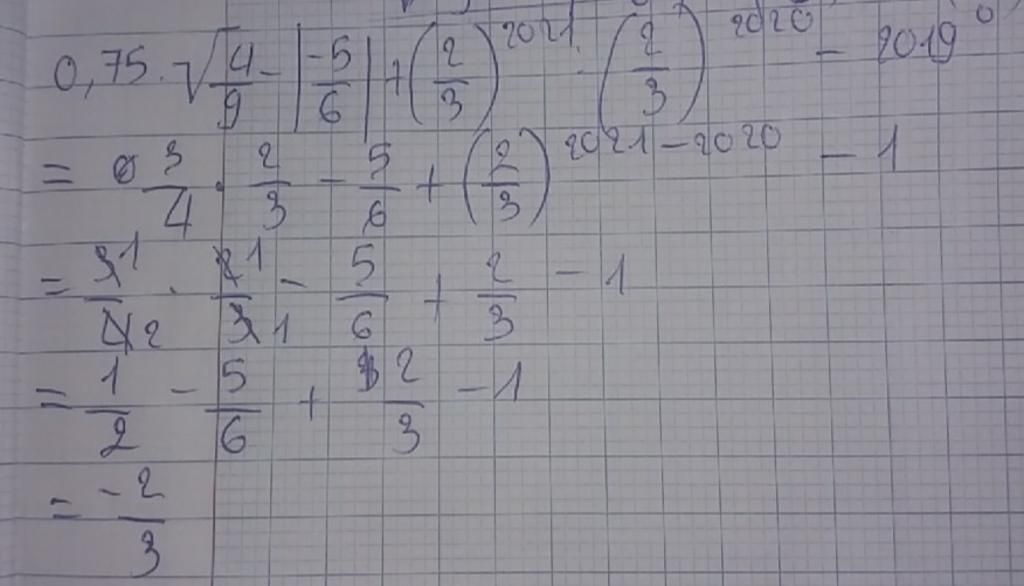 0,75 · √4/9 - |-5/6| + (2/3)^2021 · (2/3)^2020 - 2019^0
= 3/4 · 2/3 - 5/6 + (2/3)^2021-2020 - 1
= 3 1/4 2 · 2 1/3 1 - 5/6 + 2/3 - 1
= 1/2 - 5/6 + 2/3 - 1
= -2/3